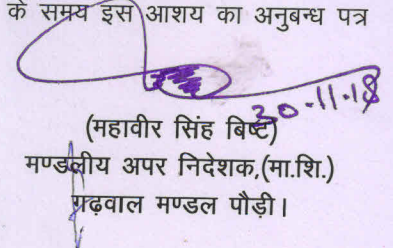 के समय इस आशय का अनुबन्ध पत्र
30-11-18
(महावीर सिंह बिष्ट)
मण्डलीय अपर निदेशक,(मा.शि.)
गढ़वाल मण्डल पौड़ी।